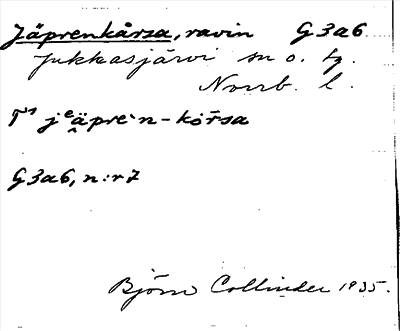 Jäprenkårsa, ravin G3a6
Jukkasjärvi sn o. tg.
Norrb. l.
G3a6, n:r 7
Björn Collinder 1935.